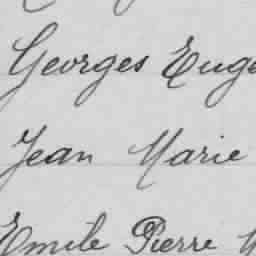 Georges Eugè
Jean Marie
Emile Pierre